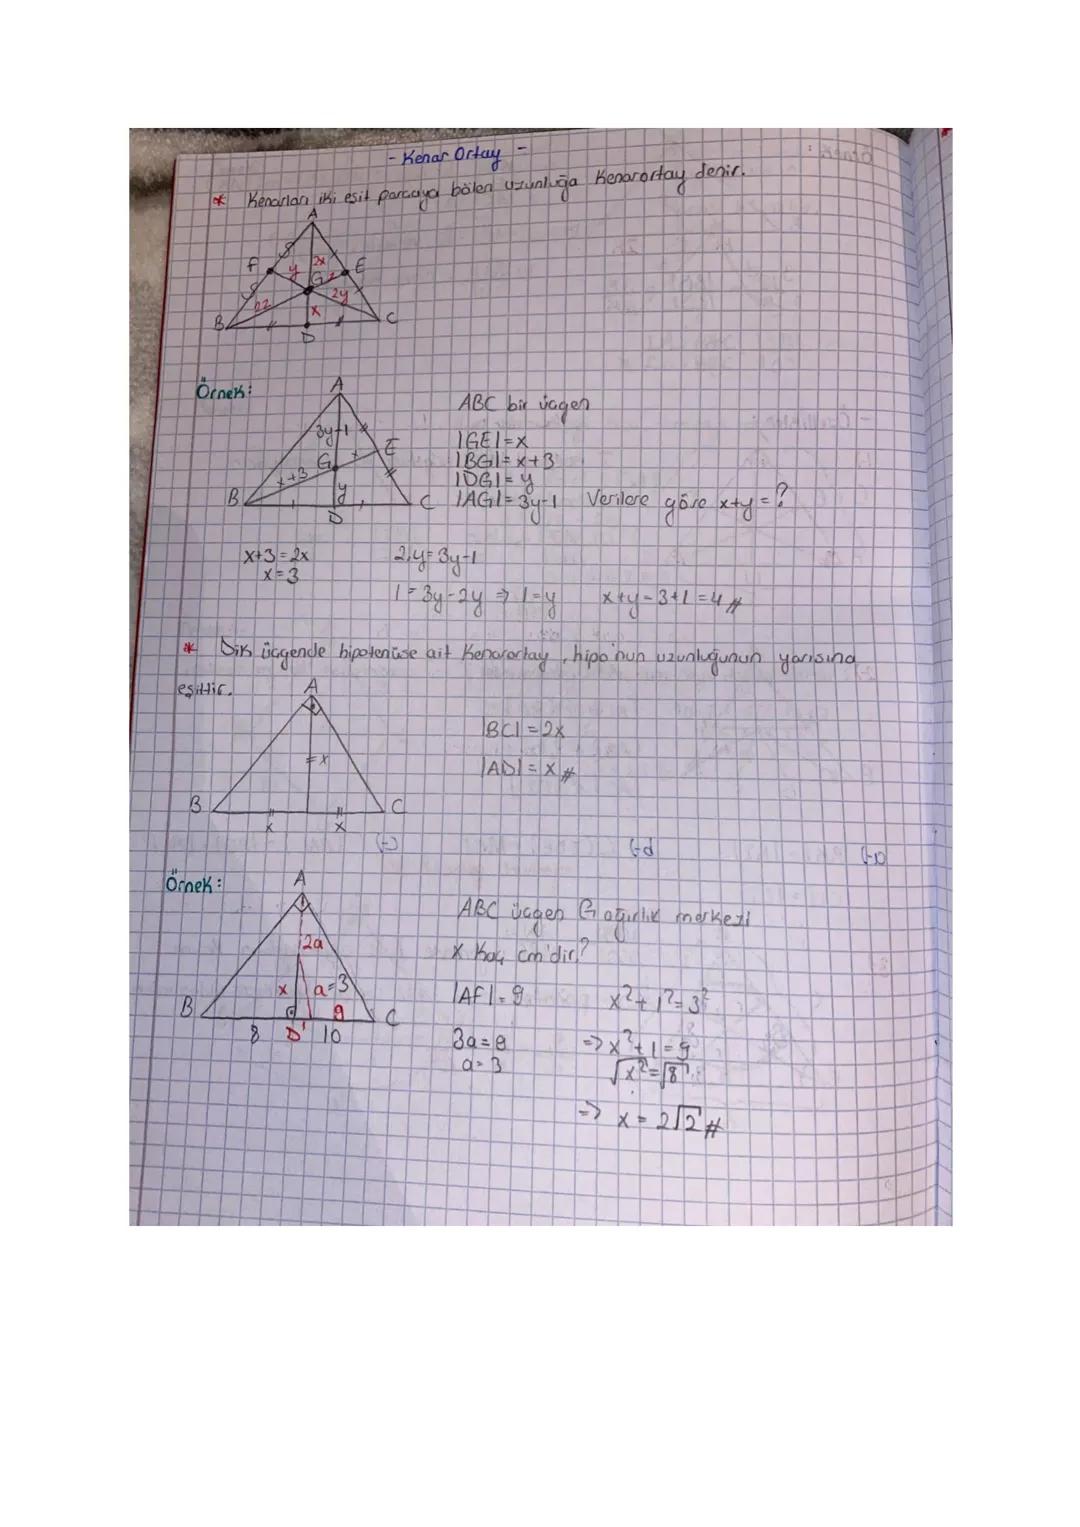 - Kenar Ortay -
* Kenarları iki eşit parçaya bölen uzunluğa Kenarortay denir.
A
F y 2x E
G z
2z 2y
x
B C
D
Örnek:
A
ABC bir üçgen
3y-1 |GE|=x
E
G x |BG|=x+3
x+3 |DG|=y
B y C |AG|=3y-1 Verilere göre x+y=?
D
x+3=2x 2.y=3y-1
x=3
1=3y-2y ⇒ 1=y x+y=3+1=4 //
* Dik üçgende hipotenüse ait Kenarortay, hipo'nun uzunluğunun yarısına
eşittir.
A
|BC|=2x
x
|AD|=x //
B C
x x
Örnek:
A
ABC üçgen G ağırlık merkezi
2a
x Kaç cm'dir?
x a=3 |AF|=9 x²+1²=3²
B 9 C
8 D 1 10 3a=9 => x²+1=9
a=3 √x²=√8
=> x=2√2 //